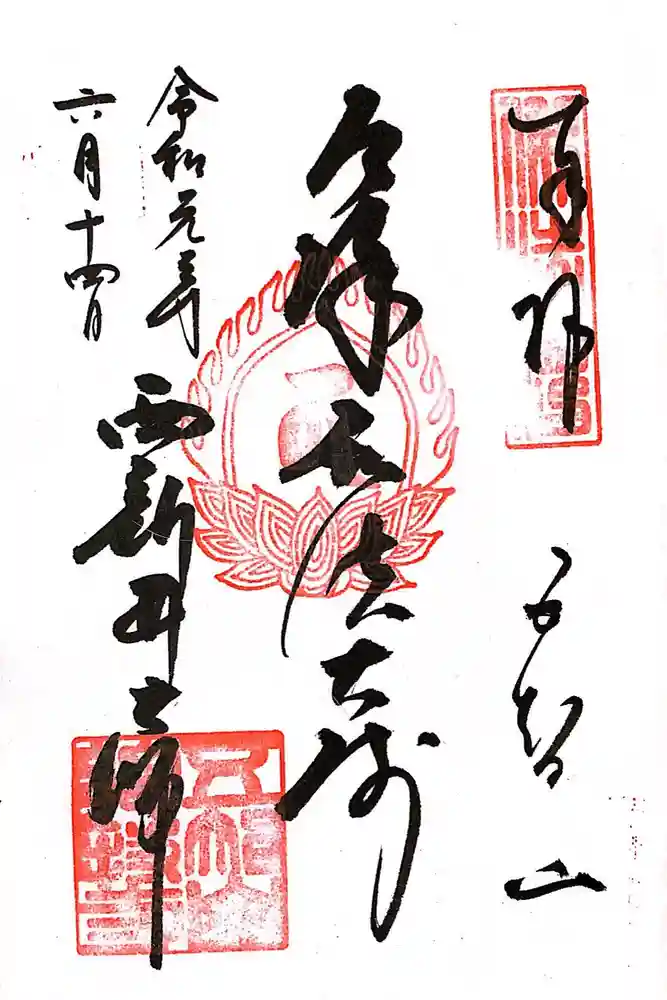 奉拝
五智山
厄除弘法大師
西新井大師
令和元年
六月十四日